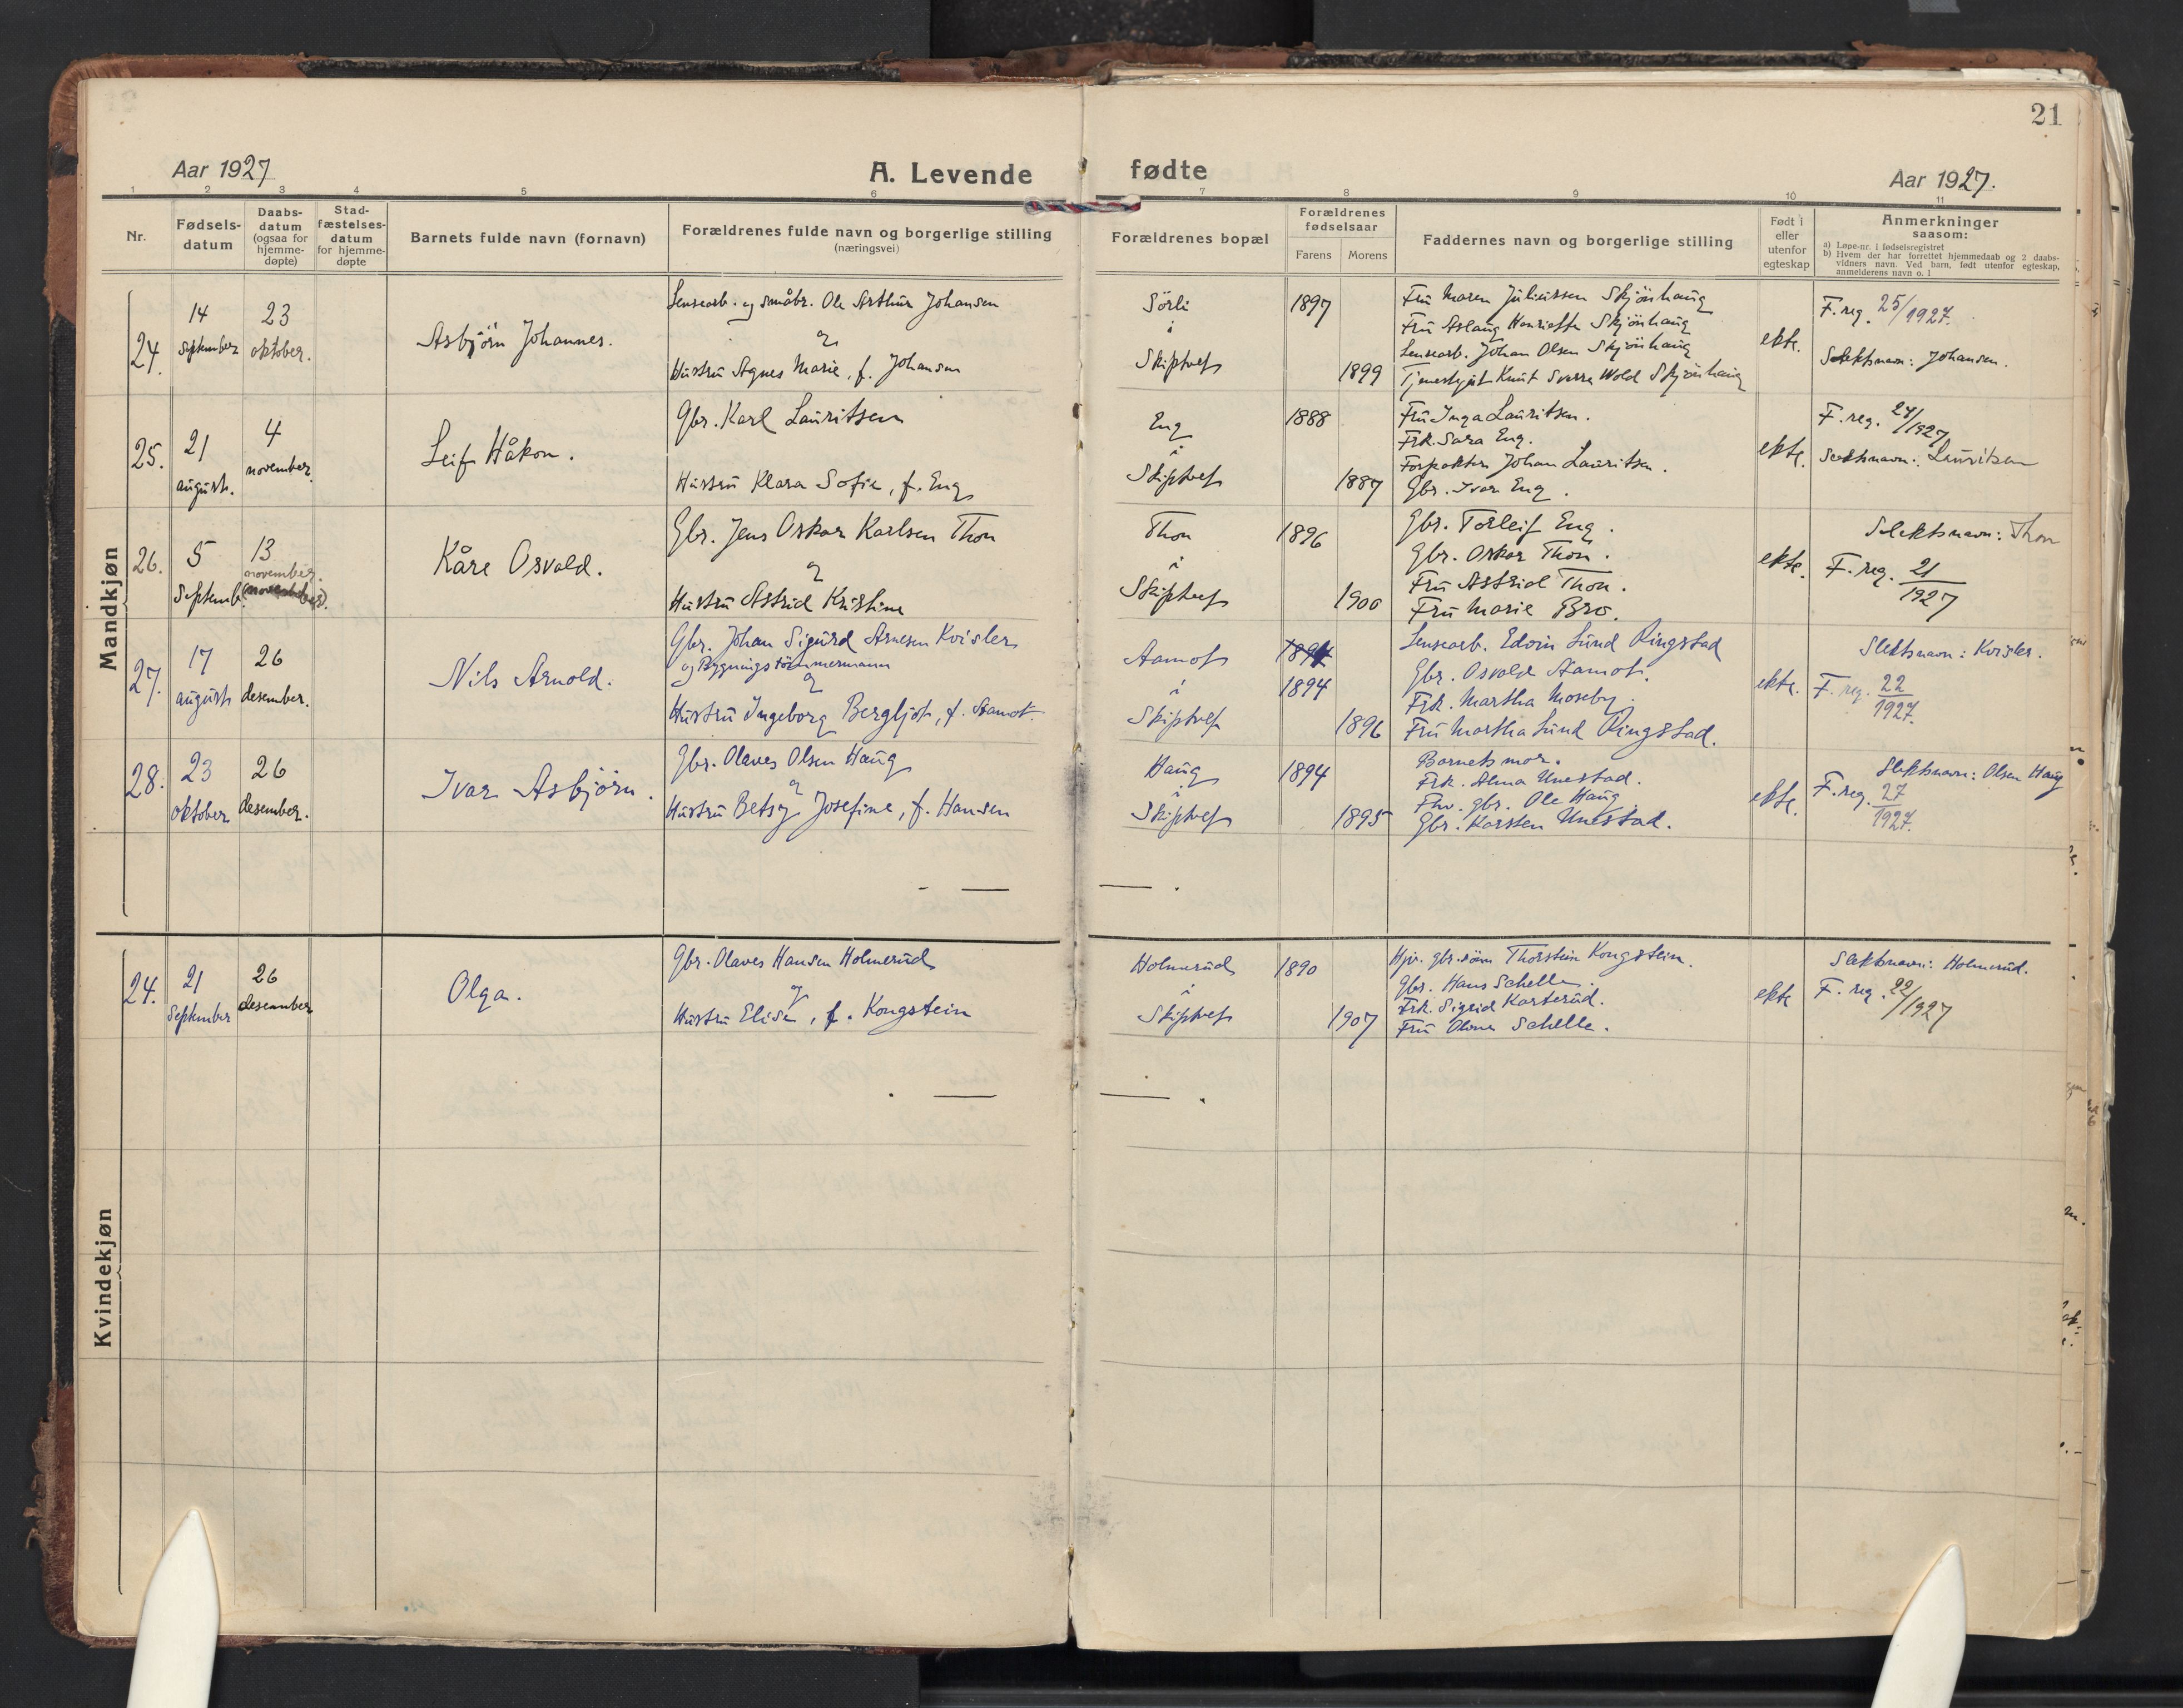 21
Aar 1927
A. Levende fødte
Aar 1927.
1 2 3 4 5 6 7 8 9 10 11
Nr.
Fødsels-
datum
Daabs-
datum
(ogsaa for
hjemme-
døpte)
Stad-
fæstelses-
datum
for hjemme-
døpte
Barnets fulde navn (fornavn)
Forældrenes fulde navn og borgerlige stilling
(næringsvei)
Forældrenes bopæl
Forældrenes
fødselsaar
Farens Morens
Faddernes navn og borgerlige stilling
Født i
eller
utenfor
egteskap
Anmerkninger
saasom:
a) Løpe-nr. i fødselsregistret
b) Hvem der har forrettet hjemmedaab og 2 daabs-
vidners navn. Ved barn, født utenfor egteskap,
anmelderens navn o. l
Mandkjøn
24.
14
september
23
oktober.
Asbjörn Johannes.
Lensearb. og småbr. Ole Arthur Johansen
og
Hustru Agnes Marie, f. Johansen
Sörli
i
Skiptvet
1897
1899
Fru Maren Juliussen Skjönhaug
Fru Aslaug Henriette Skjönhaug
Lensearb. Johan Olsen Skjönhaug
Tjenestegut Knut Sverre Wold Skjönhaug
ekte.
F. reg. 25/1927.
Slektsnavn: Johansen.
25.
21
august.
4
november.
Leif Håkon.
Gbr. Karl Lauritsen
Hustru Klara Sofie, f. Eng
Eng
i
Skiptvet
1888
1887
Fru Inga Lauritsen.
Frk. Sara Eng.
Forpakter Johan Lauritsen.
Gbr. Ivar Eng.
ekte.
F. reg. 24/1927
Slektsnavn: Lauritsen
26.
5
Septemb.
13
november.
(november).
Kåre Osvald.
Gbr. Jens Oskar Karlsen Thon
og
Hustru Astrid Kristine
Thon
i
Skiptvet
1896
1900
Gbr. Torleif Eng.
Gbr. Oskar Thon.
Fru Astrid Thon.
Fru Marie Bro.
ekte.
Slektsnavn: Thon
F. reg. 21
1927
27.
17
august
26
desember.
Nils Arnold.
Gbr. Johan Sigurd Arnesen Kvisler
og Bygningstömmermann
og
Hustru Ingeborg Bergljot, f. Aamot.
Aamot
i
Skiptvet
1894
1896
Lensearb. Edvin Lund Ringstad
Gbr. Osvald Aamot.
Frk. Martha Moseby.
Fru Martha Lund Ringstad.
ekte.
Slektsnavn: Kvisler.
F. reg. 22
1927.
28.
23
oktober
26
desember.
Ivar Asbjörn.
Gbr. Olaves Olsen Haug
og
Hustru Betsy Josefine, f. Hansen
Haug
i
Skiptvet
1894
1895
Barnets mor.
Frk. Alma Unestad.
Fhv. gbr. Ole Haug.
Gbr. Karsten Unestad.
ekte.
Slektsnavn: Olsen Haug
F. reg. 27
1927.
Kvindekjøn
24.
21
September
26
desember
Olga.
Gbr. Olaves Hansen Holmerud
og
Hustru Elise, f. Kongstein
Holmerud
i
Skiptvet
1890
1907
Hjv. gbr. sönn Thorstein Kongstein.
Gbr. Hans Schelle.
Frk. Sigrid Karterud.
Fru Olova Schelle.
ekte
Slektsnavn: Holmerud.
F. reg. 22/1927